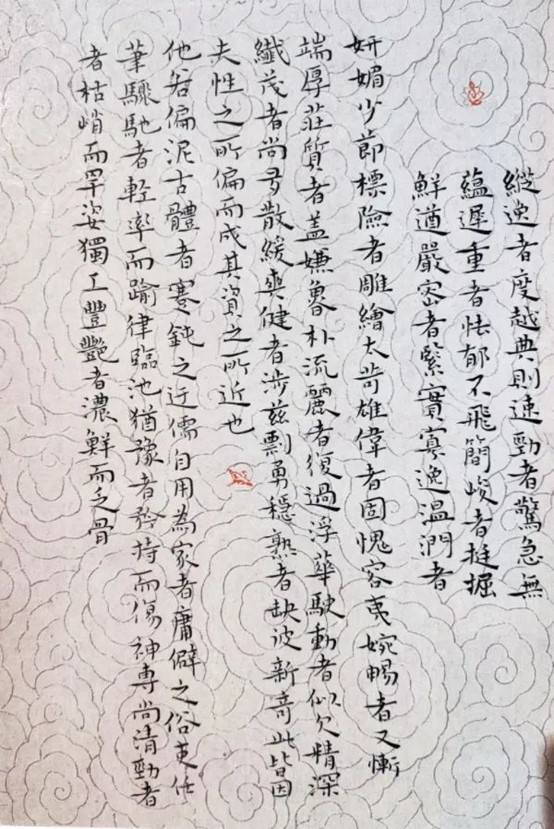 縱逸者度越典則速勁者驚急無
蘊遲重者怯郁不飛簡峻者挺掘
鮮遒嚴密者緊實寡逸溫潤者
妍媚少節標險者雕繪太苛雄偉者固愧容夷婉暢者又慚
端厚莊質者蓋嫌魯朴流麗者復過浮華駛動者似欠精深
纖茂者尚多散緩爽健者涉茲剽勇穩熟者缺波新奇此皆因
夫性之所偏而成其資之所近也
他若偏泥古體者蹇鈍之迂儒自用為家者庸僻之俗吏任
筆驟馳者軽率而踰律臨池猶豫者矜持而傷神專尚清勁者
者枯峭而罕姿獨工豐艷者濃鮮而乏骨